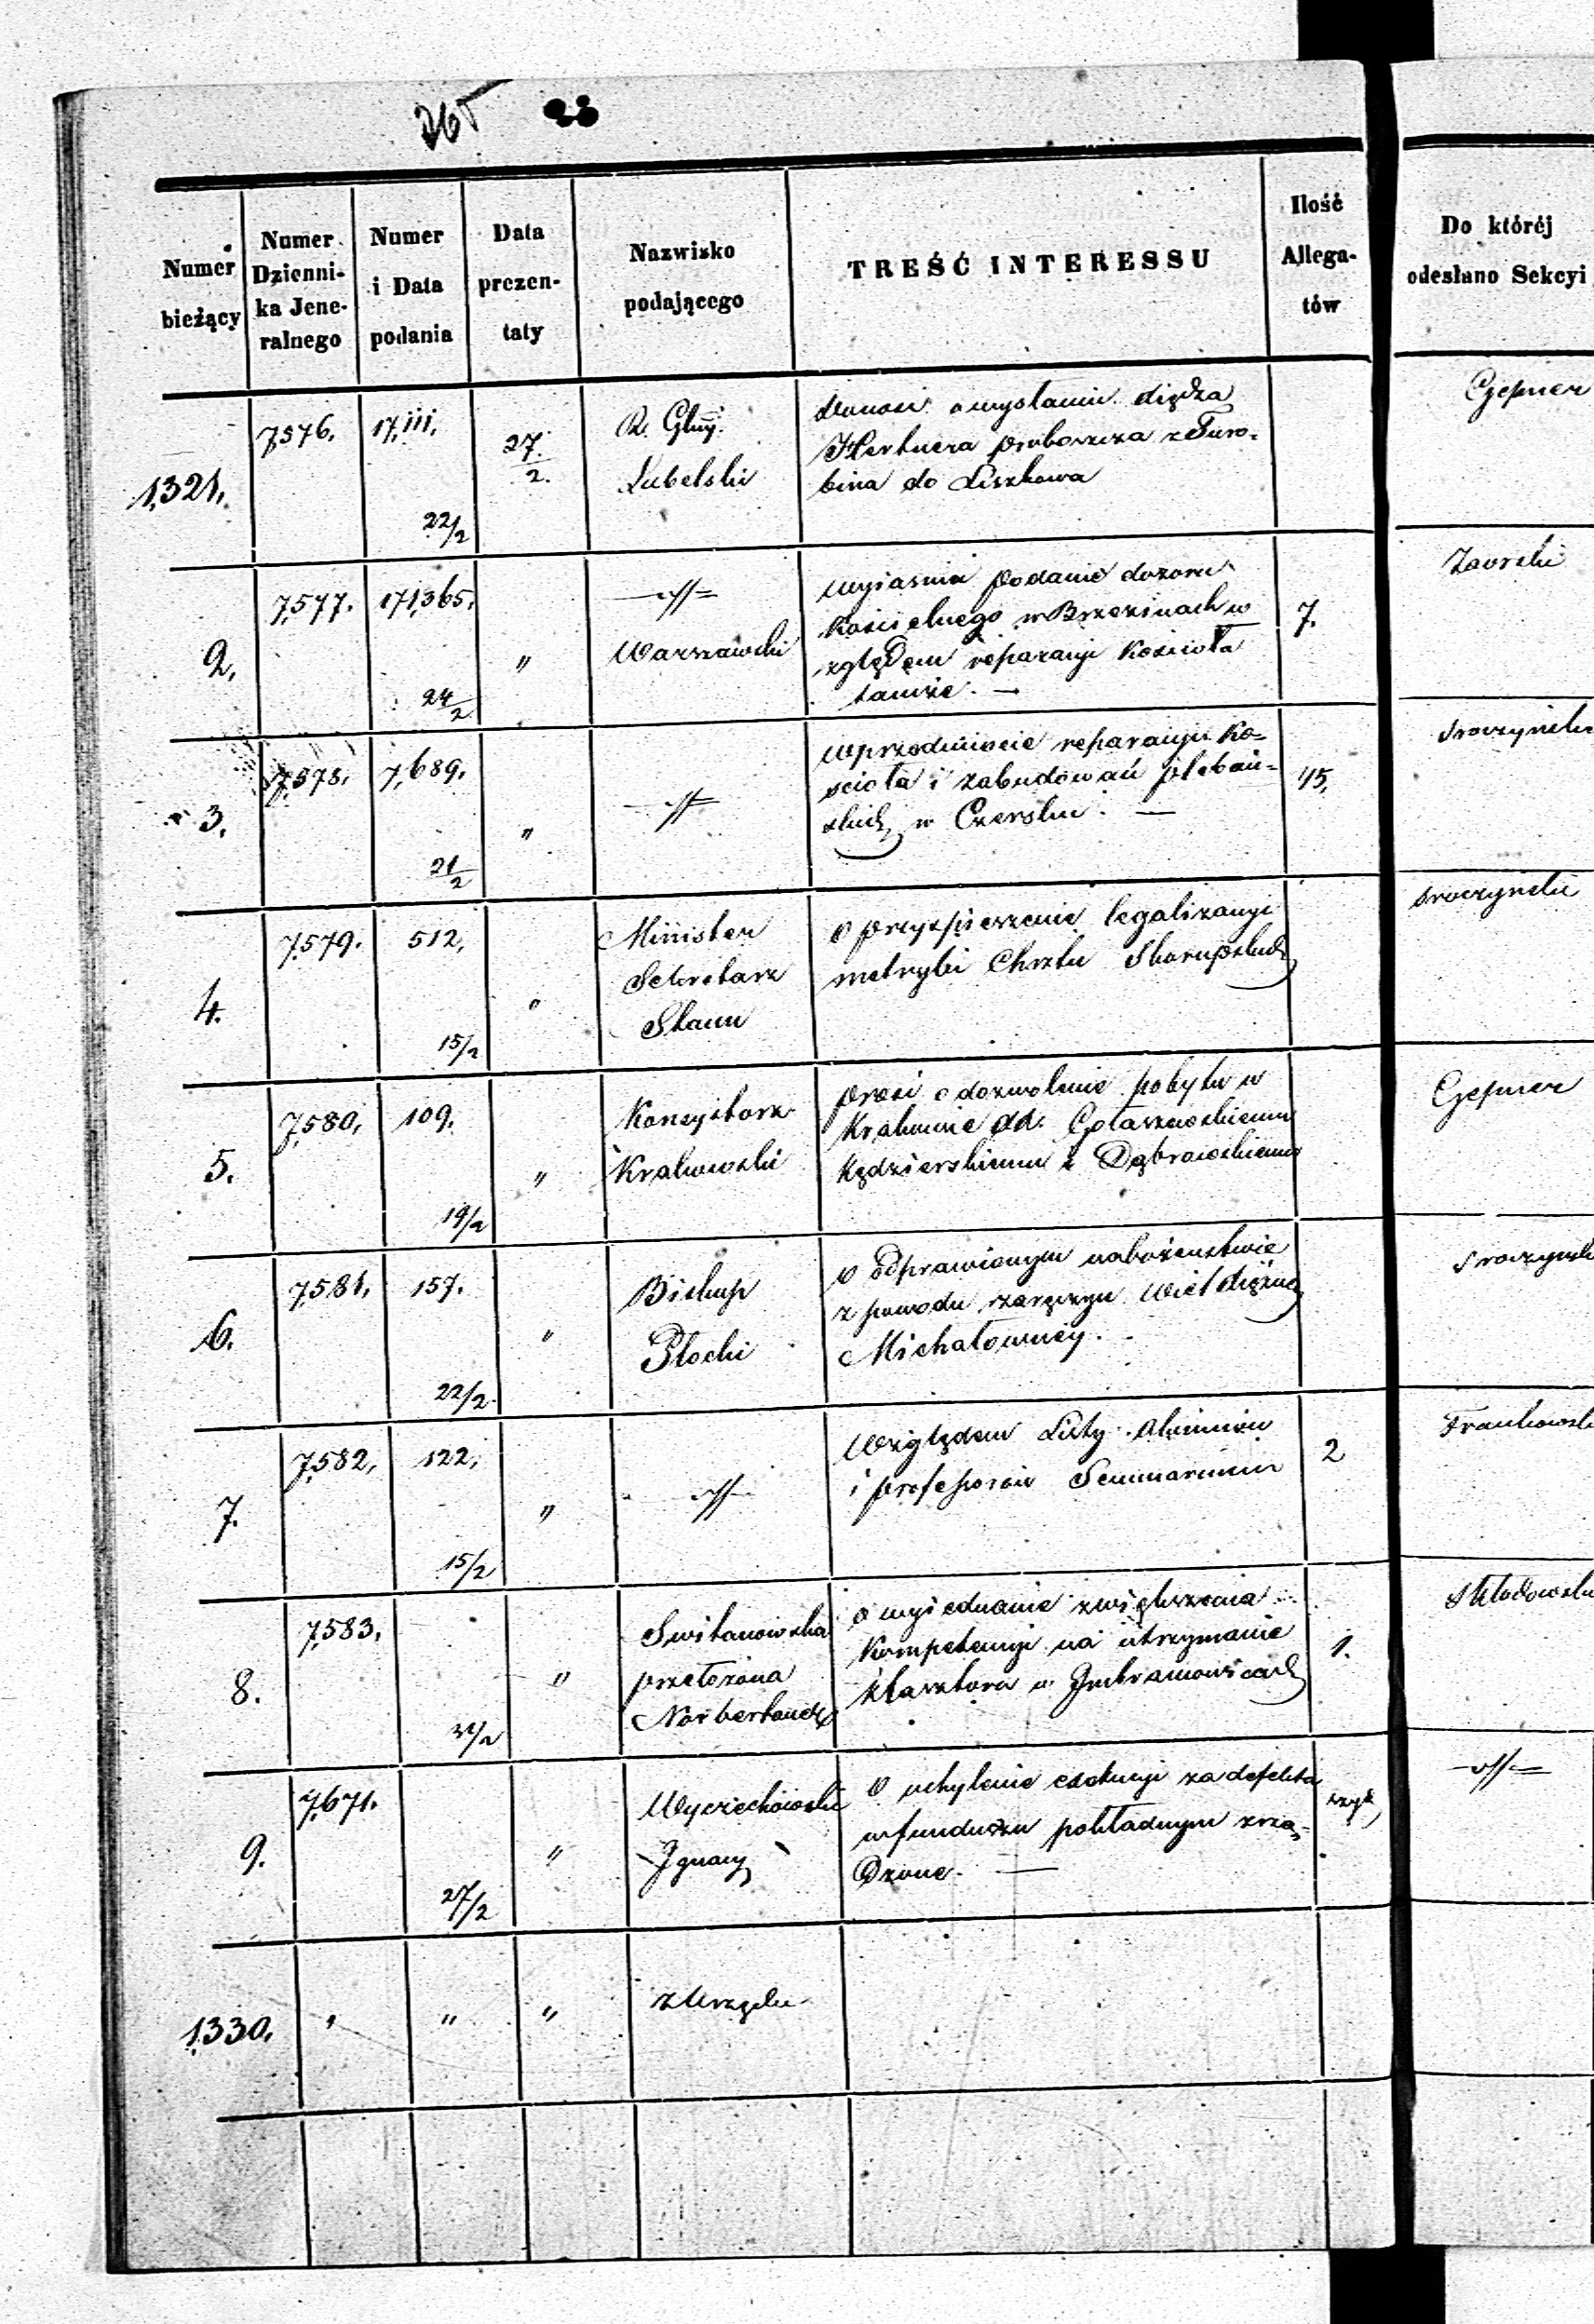 265
Numer bieżący
Numer Dzienni-ka Jene-ralnego
Numer i Data podania
Data prezen-taty
Nazwisko podającego
TREŚĆ INTERESSU
Ilość Allega-tów
Do któréj odesłano Sekcyi
1,321. 7,576. 17,111. 22/2 27./2.
R. Gbuy.
Lubelski
donosi o wysłaniu Xiędza
Hertnera proboszcza z Turo-
bina do Liszkowa
Gepner
2. 7,577. 171,365. 24/2 "
Warszawski
wyjasnia podanie dozoru
Kościelnego w Brzezinach w
zględem reparacyi Kościoła
tamże. —
7.
Zaorski
3. 7,578. 7,689. 21/2 "
w przedmiocie reparacyi Ko-
ścioła i zabudowań plebań-
skich w Czersku. —
45.
Sroczyński
4. 7579. 512, 15/2 "
Minister
Sekretarz
Stanu
o przyspieszenie legalizacyi
metryki Chrztu Skarupskich
Sroczyński
5. 7,580, 109. 19/2 "
Konsystorz
Krakowski
prosi o dozwolenie pobytu w
Krakowie XX. Gołaszewskiemu
Kędzierskiemu i Dąbrowskiemu
Gepner
6. 7,581. 157. 22/2 "
Biskup
Płocki
o odprawionym nabożeństwie
z powodu zaręczyn Wiel Xiężnej
Michałowney.
Sroczyński
7. 7,582, 122, 15/2 "
Względem Listy Alumnów
i professorów Seminarium
2
Frankowski
8. 7,583. "
Switanowska
przełożona
Norbertanek
o wyjednanie zwiększenia
Kompetencyi na utrzymanie
klasztoru w Imbramowicach
1.
Skłodowski
9. 7,671. 27/2 "
Wyciechowski
Ignacy
O uchylenie exekucyi za defekta
w funduszu pokładnym zrzą-
dzone. —
1330. " " "
z Urzędu